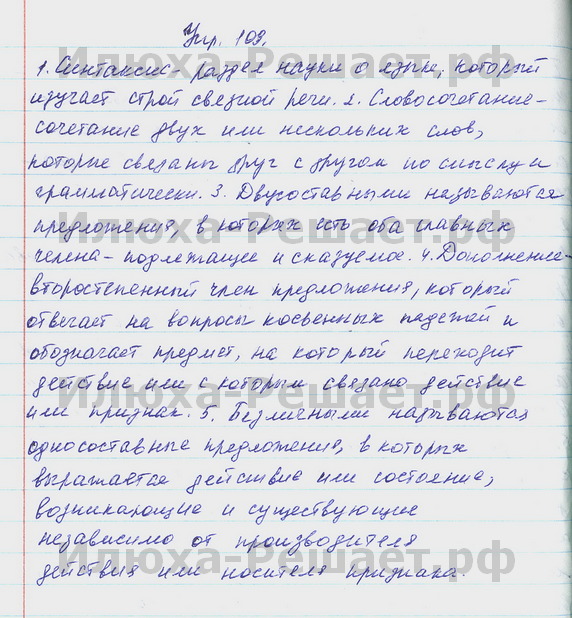 Упр. 103.
1. Синтаксис - раздел науки о языке, который
изучает строй связной речи. 2. Словосочетание -
сочетание двух или нескольких слов,
которые связаны друг с другом по смыслу и
грамматически. 3. Двусоставными называются
предложения, в которых есть оба главных
члена - подлежащее и сказуемое. 4. Дополнение -
второстепенный член предложения, который
отвечает на вопросы косвенных падежей и
обозначает предмет, на который переходит
действие или с которым связано действие
или признак. 5. Безличными называются
односоставные предложения, в которых
выражается действие или состояние,
возникающие и существующие
независимо от производителя
действия или носителя признака.
Илюха-Решает.рф
Илюха-Решает.рф
Илюха-Решает.рф
Илюха-Решает.рф
Илюха-Решает.рф